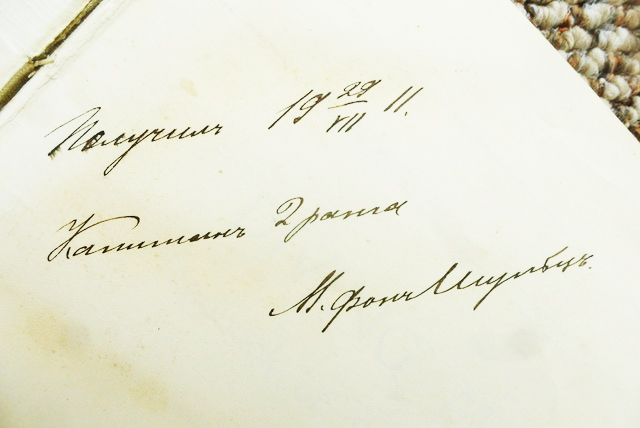 Получилъ 19 29/VII 11.
Капитанъ 2 ранга
М. фонъ Шульцъ.